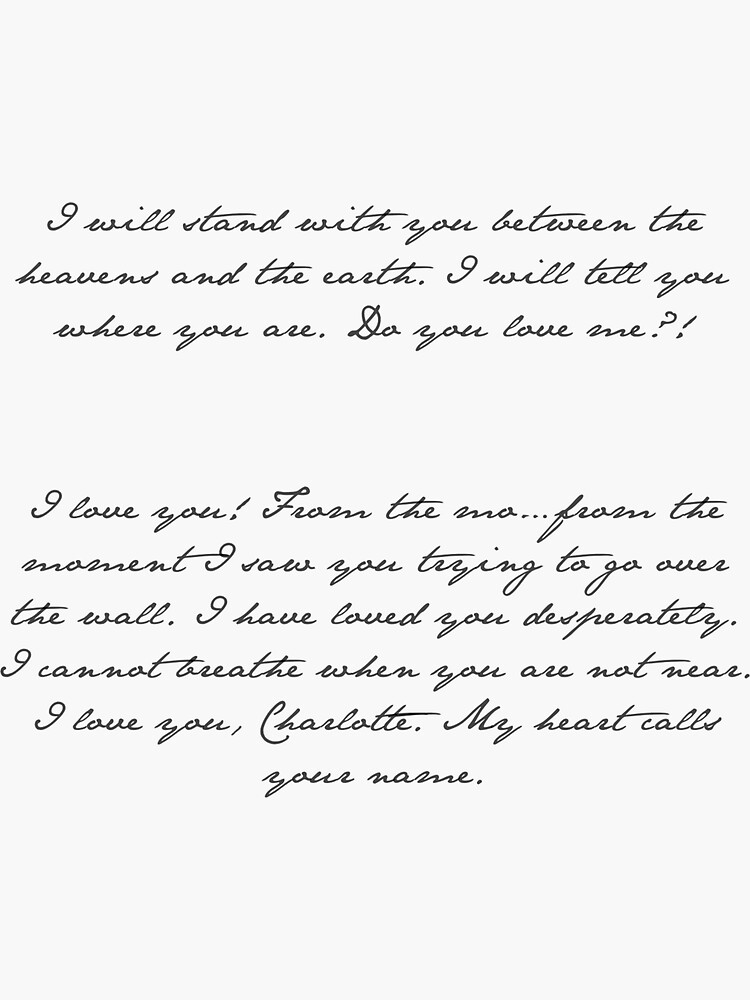 I will stand with you between the
heavens and the earth. I will tell you
where you are. Do you love me?!
I love you! From the mo...from the
moment I saw you trying to go over
the wall. I have loved you desperately.
I cannot breathe when you are not near.
I love you, Charlotte. My heart calls
your name.